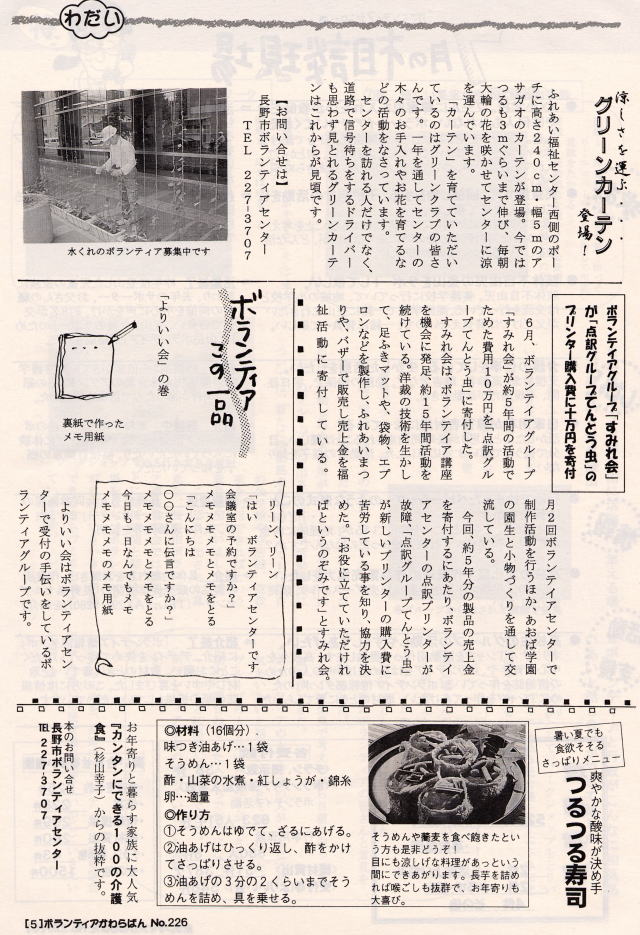 わだい
涼しさを運ぶ・・・・
グリーンカーテン
登場！
ふれあい福祉センター西側のポー
チに高さ240cm・幅5mのア
サガオのカーテンが登場。今では
つるも3mぐらいまで伸び、毎朝
大輪の花を咲かせてセンターに涼
を運んでいます。
「カーテン」を育てていただい
ているのはグリーンクラブの皆さ
んです。一年を通してセンターの
木々のお手入れやお花を育てるな
どの活動をなさっています。
センターを訪れる人だけでなく、
道路で信号待ちをするドライバー
も思わず見とれるグリーンカーテ
ンはこれからが見頃です。
【お問い合せは】
長野市ボランティアセンター
TEL 227-3707
水くれのボランティア募集中です
ボランティアグループ「すみれ会」
が「点訳グループてんとう虫」の
プリンター購入費に十万円を寄付
6月、ボランティアグループ
「すみれ会」が約5年間の活動で
ためた費用10万円を「点訳グル
ープてんとう虫」に寄付した。
すみれ会は、ボランティア講座
を機会に発足、約15年間活動を
続けている。洋裁の技術を生かし
て、足ふきマットや、袋物、エプ
ロンなどを製作し、ふれあいまつ
りや、バザーで販売し売上金を福
祉活動に寄付している。
月2回ボランティアセンターで
制作活動を行うほか、あおば学園
の園生と小物づくりを通して交
流している。
今回、約5年分の製品の売上金
を寄付するにあたり、ボランティ
アセンターの点訳プリンターが
故障、「点訳グループてんとう虫」
が新しいプリンターの購入費に
苦労している事を知り、協力を決
めた。「お役に立てていただけれ
ばというのぞみです」とすみれ会。
ボランティア
この一品
「よりいい会」の巻
裏紙で作った
メモ用紙
リーン、リーン
「はい ボランティアセンターです
会議室の予約ですか？」
メモメモメモとメモをとる
「こんにちは
〇〇さんに伝言ですか？」
メモメモメモとメモをとる
今日も一日なんでもメモ
メモメモメモのメモ用紙
よりいい会はボランティアセン
ターで受付の手伝いをしているボ
ランティアグループです。
暑い夏でも
食欲そそる
さっぱりメニュー
爽やかな酸味が決め手
つるつる寿司
そうめんや蕎麦を食べ飽きたとい
う方も是非どうぞ！
目にも涼しげな料理があっという
間にできあがります。長芋を詰め
れば喉ごしも抜群で、お年寄りも
大喜び。
◎材料（16個分）．
味つき油あげ…1袋
そうめん…1袋
酢・山菜の水煮・紅しょうが・錦糸
卵…適量
◎作り方
①そうめんはゆでて、ざるにあげる。
②油あげはひっくり返し、酢をかけ
てさっぱりさせる。
③油あげの3分の2くらいまでそう
めんを詰め、具を乗せる。
お年寄りと暮らす家族に大人気
『カンタンにできる100の介護
食』（杉山幸子）からの抜粋です。
本のお問い合せ
長野市ボランティアセンター
TEL 227-3707
[5]ボランティアかわらばん No.226